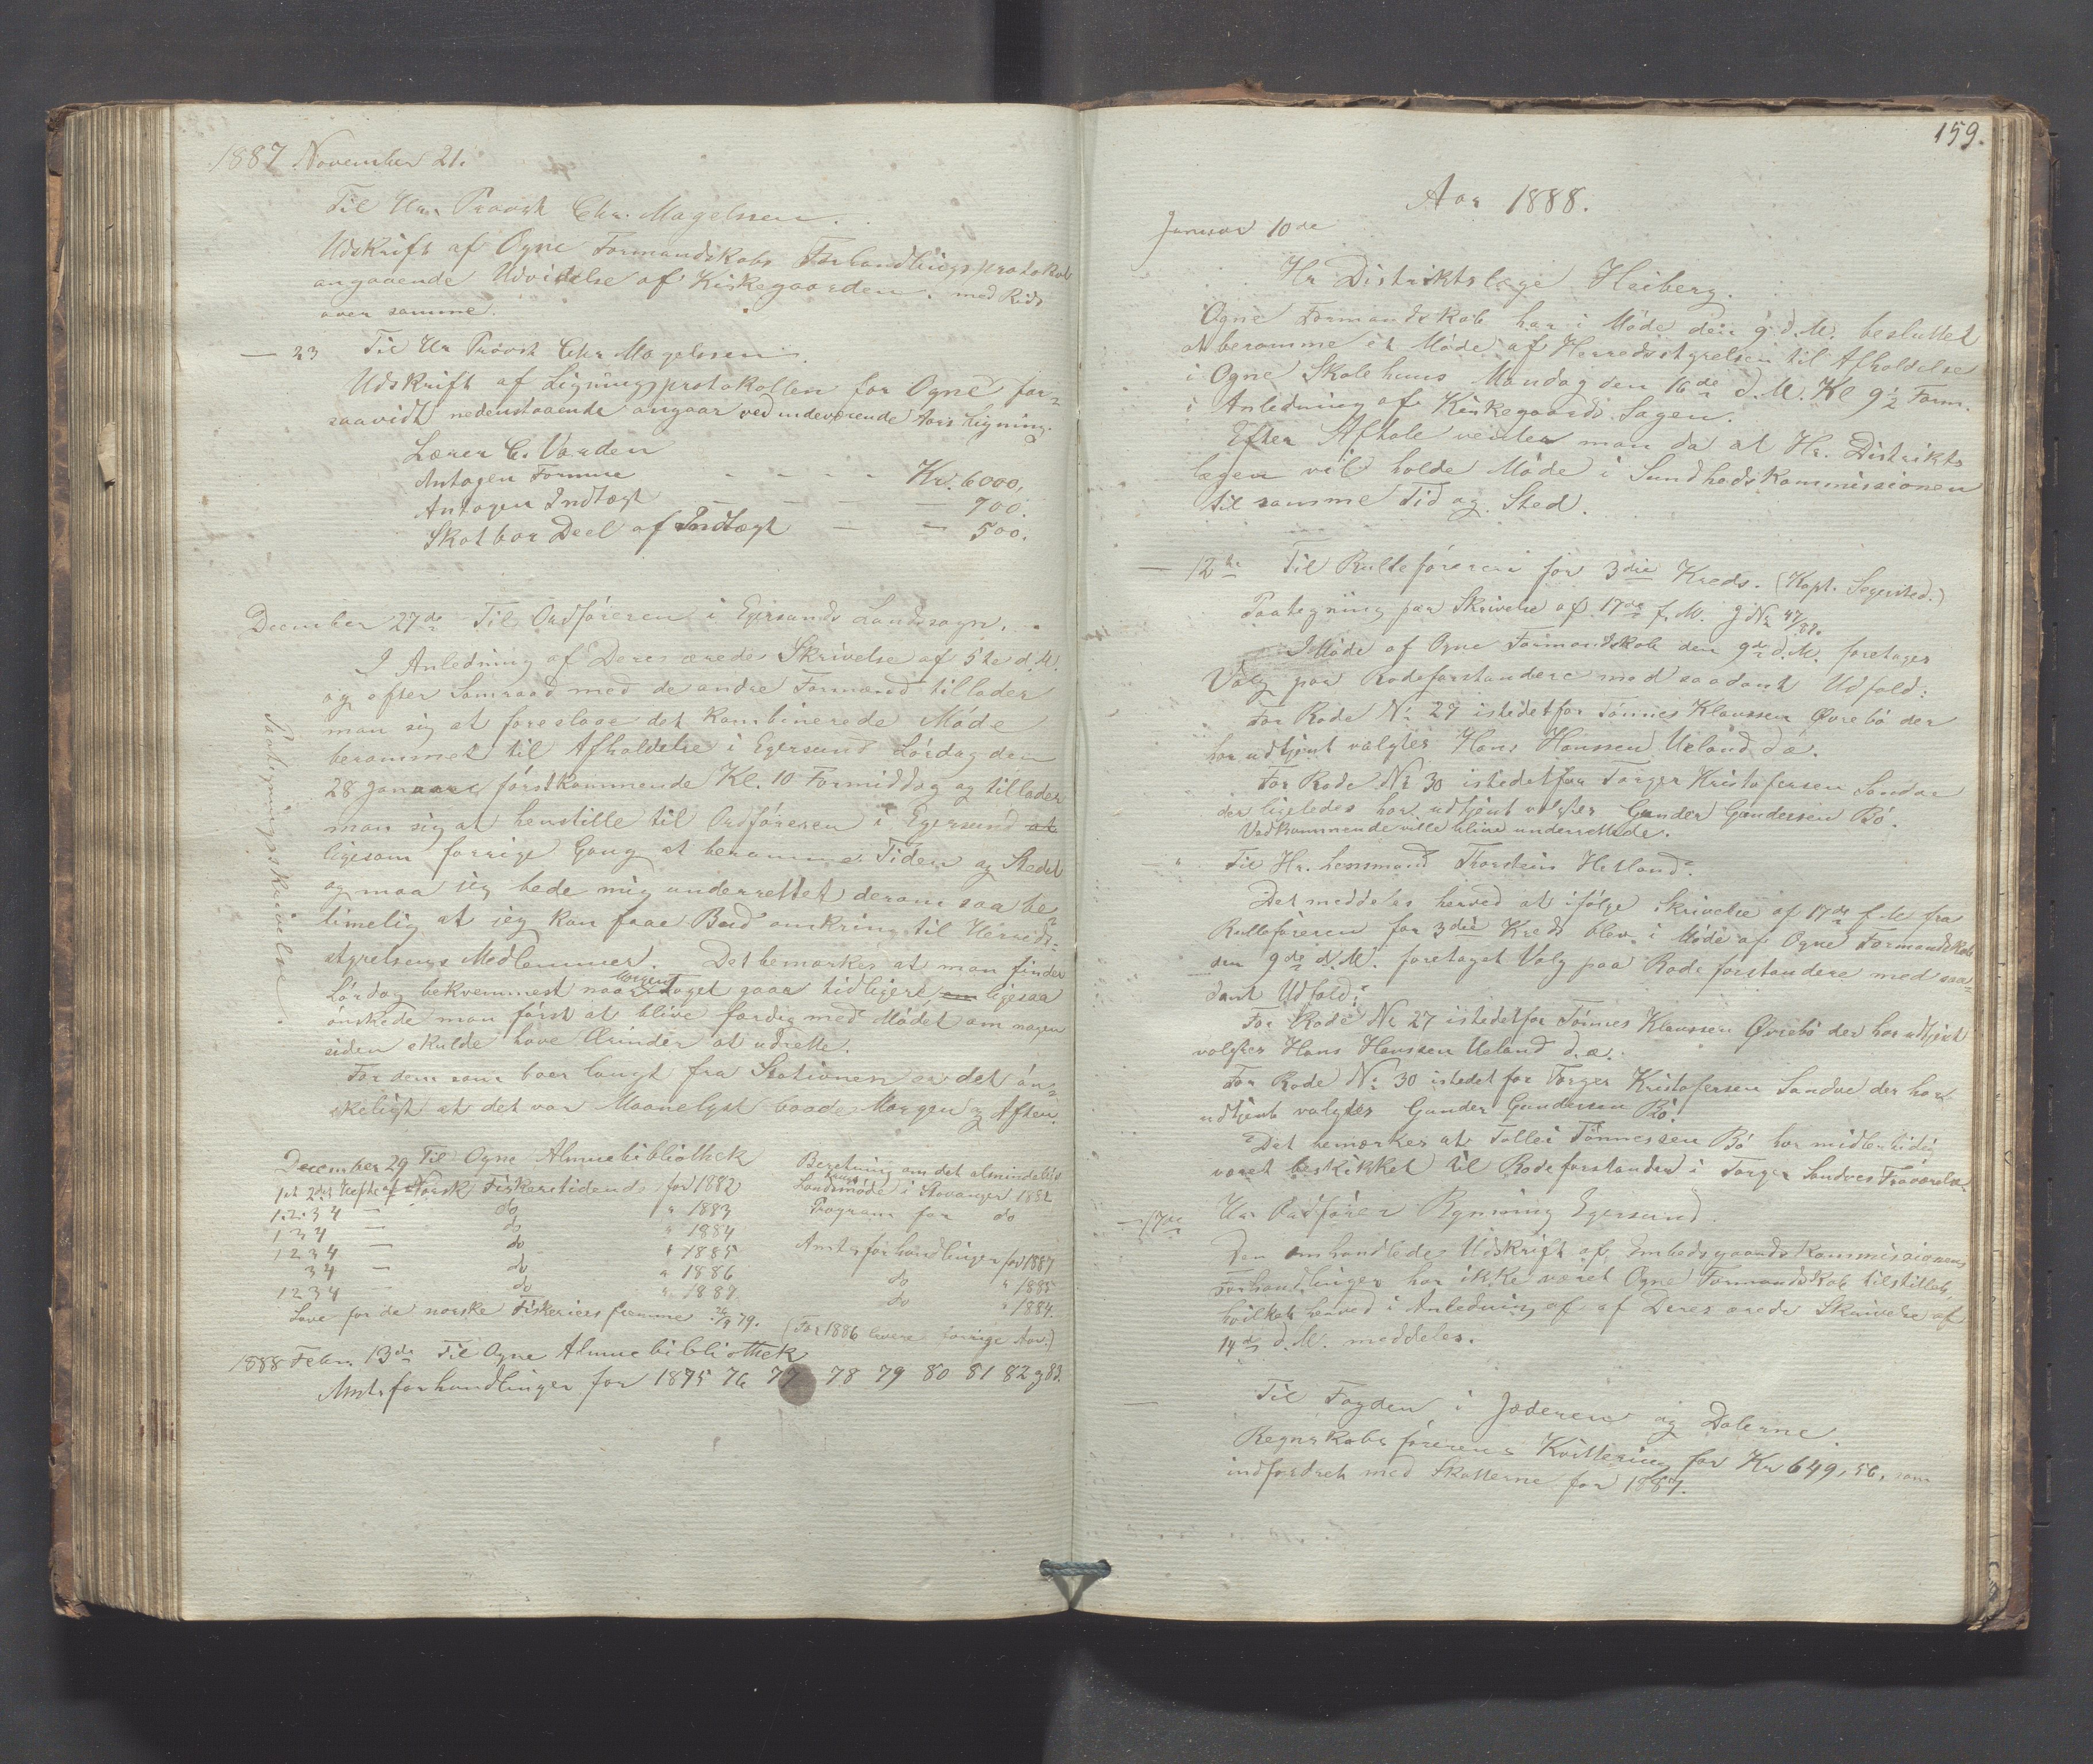 1887 November 21.
Til Hr. Provst Chr. Magelssen.
Udskrift af Ogne Formandskabs Forhandlingsprotokol
angaaende Udvidelse af Kirkegaarden. med Rids
over samme.
— 23 Til Hr Provst Chr Magelssen.
Udskrift af Ligningsprotokollen for Ogne for-
saavidt nedenstaaende angaar ved indeværende Aars Ligning.
Lærer C. Varden
Antagen Formue - - - - Kr. 6000,
Antagen Indtægt — — — 900.
Skatbar Deel af Indtægt — — 500.
December 27de Til Ordføreren i Egersunds Landsogn.
I Anledning af Deres ærede Skrivelse af 5te d.M.
og efter Samraad med de andre Formænd tillader
man sig at foreslaae det kombinerede Møde
berammet til Afholdelse i Egersund Lørdag den
28 Januar førstkommende Kl. 10 Formiddag og tillader
man sig at henstille til Ordføreren i Egersund at
ligesom forrige Gang at beramme Tiden og Stedet
og maa jeg bede mig underrettet derom saa be-
timelig at jeg kan faae Bud omkring til Herreds-
styrelsens Medlemmer. Det bemærkes at man finder
Lørdag bekvemmest naar Morgen Toget gaar tidligere, om ligesaa
ønskede man først at blive færdig med Mødet om nogen
siden skulde have Ærinder at udrette.
For dem som boer langt fra Stationen er det øn-
skeligt at det var Maanelyst baade Morgen og Aften.
Paategningsskrivelse.
December 29 Til Ogne Almuebibliothek
1ste 2det Hefte af Norsk Fiskeritidende for 1882
1.2.3 4 — do " 1883
1 3 4 — do " 1884
1 2 3 4 — do " 1885
3 4 — do " 1886
1 2 3 4 — do " 1887
Love for de norske Fiskeriers fremme 79.
Beretning om det almindelige
Landsmøde i Stavanger 1882
Program for do
Amtsforhandlinger for 1887
do " 1885
do " 1884.
(for 1886 levere forrige Aar.)
1888 Febr. 13de Til Ogne Almuebibliothek
Amtsforhandlinger for 1875 76 77 78 79 80 81 82 og 83.
159.
Aar 1888.
Januar 10de
Hr Distriktslæge Heiberg.
Ogne Formandskab har i Møde den 9 d.M. besluttet
at beramme et Møde af Herredsstyrelsen til Afholdelse
i Ogne Skolehuus Mandag den 16de d.M. Kl 9½ Form.
i Anledning af Kirkegaards Sagen.
Efter Aftale venter man da at Hr. Distrikts
lægen vil holde Møde i Sundhedskommissionen
til samme Tid og Sted.
— 12te Til Rulleføreren for 3die Kreds. (Kapt. Sogersted.)
Paategning paa Skrivelse af 17de f.M. J No 47/87.
I Møde af Ogne Formandskab den 9de d.M. foretages
Valg paa Rodeforstandere med saadant Udfald:
For Rode No 27 istedetfor Tønnes Klaussen Øvrebø der
har udtjent valgtes Hans Hanssen Ueland d.æ.
For Rode No 30 istedetfor Torger Kristofersen Sandve
der ligeledes har udtjent valgtes Gunder Gundersen Bø.
Vedkommende ville blive underrettede.
— " Til Hr. Lensmand Thorstein Hetland.
Det meddeles herved at ifølge Skrivelse af 17de f.M fra
Rulleføreren for 3die Kreds blev i Møde af Ogne Formandskab
den 9de d.M. foretaget Valg paa Rodeforstandere med saa-
dant Udfald:
For Rode No 27 istedetfor Tønnes Klaussen Øvrebø der har udtjent
valgtes Hans Hanssen Ueland d.æ.
For Rode No 30 istedet for Torger Kristofersen Sandve der har
udtjent valgtes Gunder Gundersen Bø.
Det bemærkes at Tollei Tønnessen Bø har midlertidig
været beskikket til Rodeforstander i Torger Sandves Fraværelse
— 17de Hr Ordfører Rynning Egersund.
Den omhandlede Udskrift af Embedsgaardskommissionens
Forhandlinger har ikke været Ogne Formandskab tilstillet,
hvilket herved i Anledning af af Deres ærede Skrivelse af
14de d.M. meddeles.
— Til Fogden i Jæderen og Dalerne.
Regnskabsførerens Kvittering for Kr 649,56, som
indfordret med Skatterne for 1887.